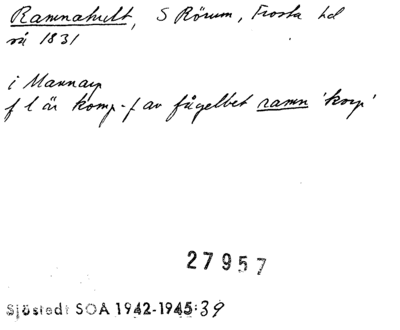 Ramnahult, S Rörum, Frosta hd
så 1831
i Mannarp
f l är komp-f av fågelbet ramn 'korp'
27957
Sjöstedt SOA 1942-1945:39